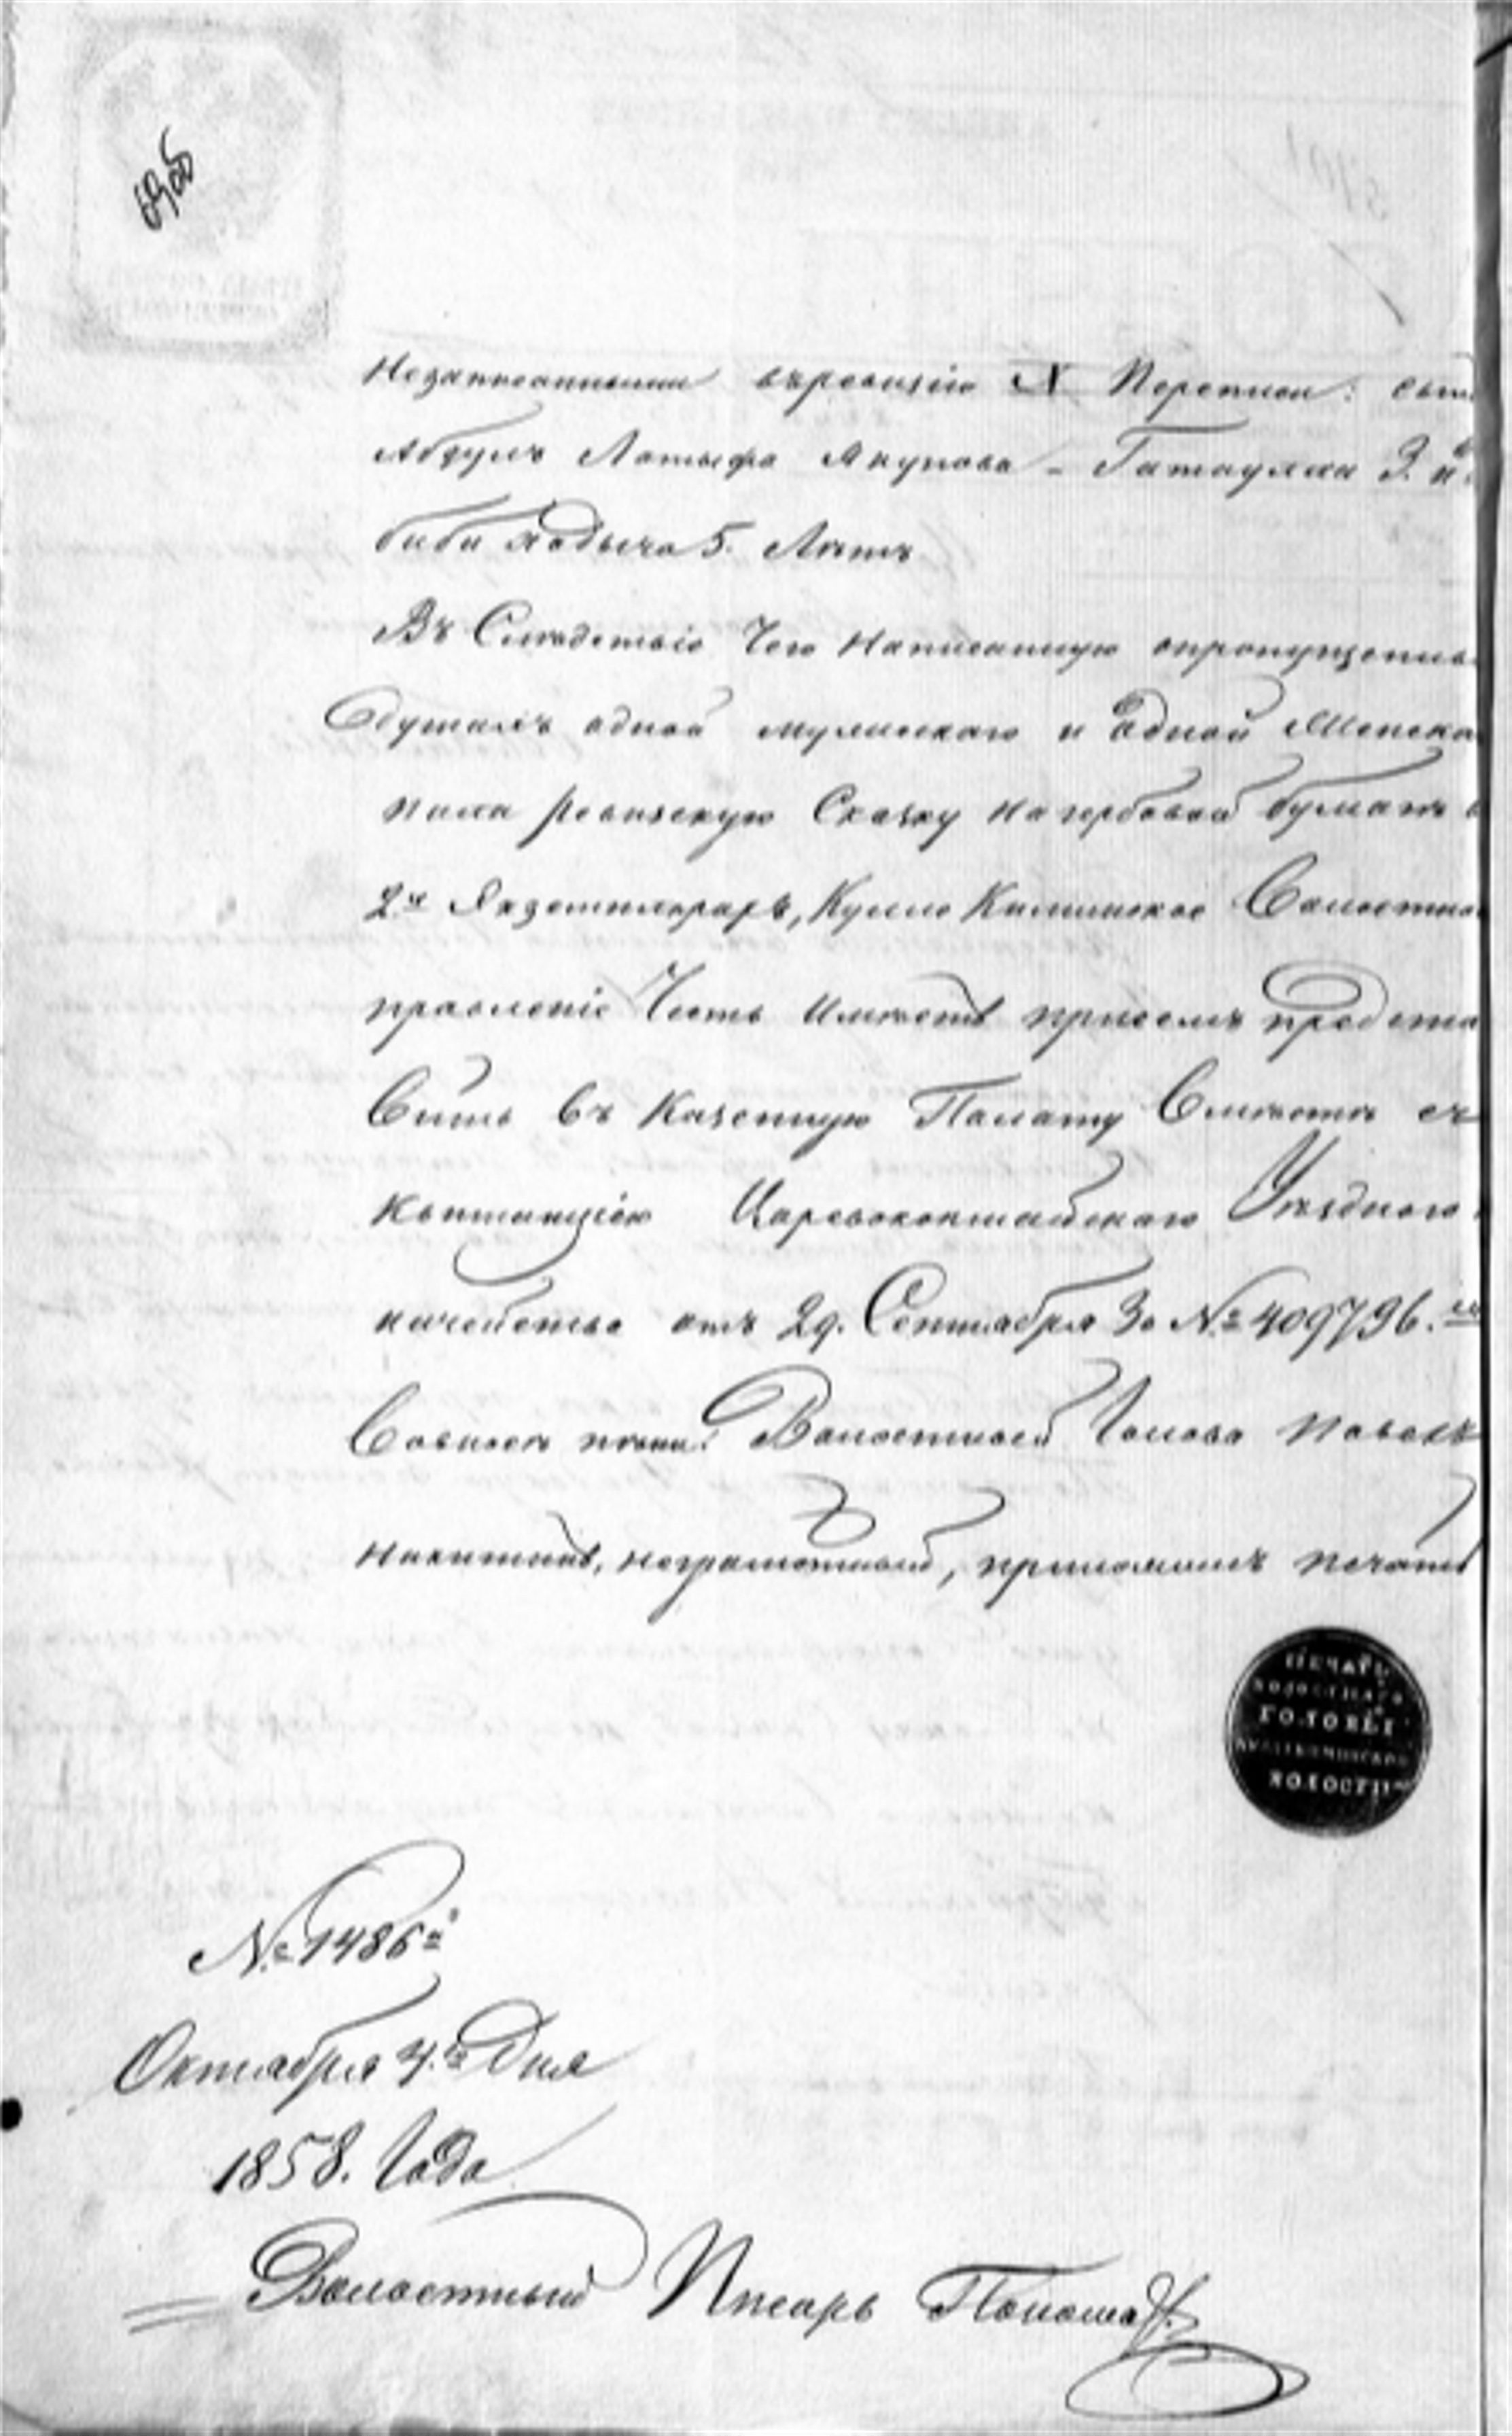 Незаписанными въревизію X Переписи: сын
Абдулъ Латыфа Якупова - Гатаулла 3. и
биби хадыча 5. Лѣтъ
Въ Слѣдствіе Чего Написанную опропущенны
Одушахъ одной мужескаго и Одной Женска
пола Ревизскую Сказку На гербовой бумагѣ в
2хъ Экземплярахъ, Кулле Киминское Волостно
правленіе Честь Имѣетъ присемъ предста
вить въ Казенную Палату Вмѣстѣ съ
Квитанціею Царевококшайскаго Уѣзднаго
начейства отъ 29. Сентября За № 409796.
Волостной Голова Павелъ
Никитинъ, неграмотный, приложилъ печать
ПЕЧАТЬ
ВОЛОСТНАГО
ГОЛОВЫ
КУЛЛЕКИМИНСКОЙ
ВОЛОСТИ
№ 1486й
Октября 4го Дня
1858. Года
Волостный Писарь